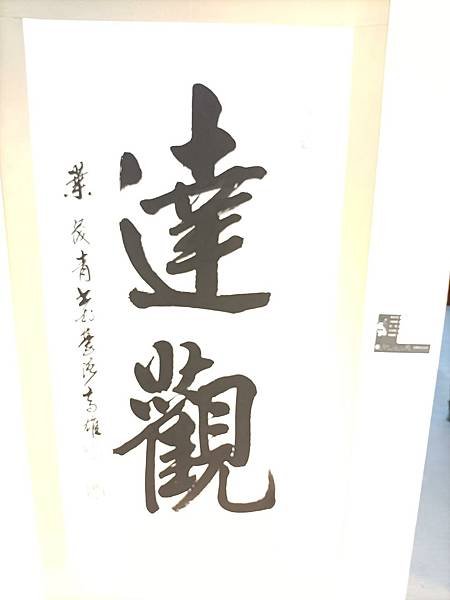 達觀
葉茂青書於臺灣高雄